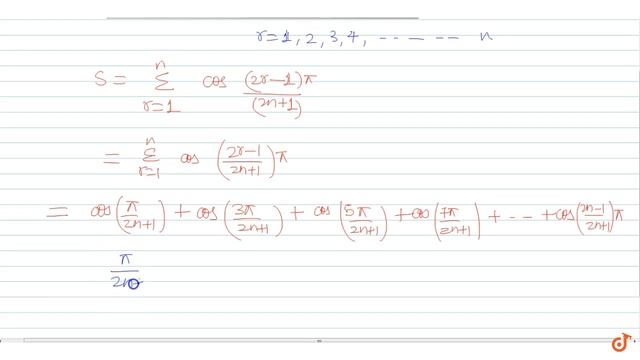 r=1, 2, 3, 4, ------ n
S = n Σ r=1 cos (2r-1)π/(2n+1)
= n Σ r=1 cos (2r-1/2n+1)π
= cos(π/2n+1) + cos(3π/2n+1) + cos(5π/2n+1) + cos(7π/2n+1) + -- + cos(2n-1/2n+1)π
π/2n